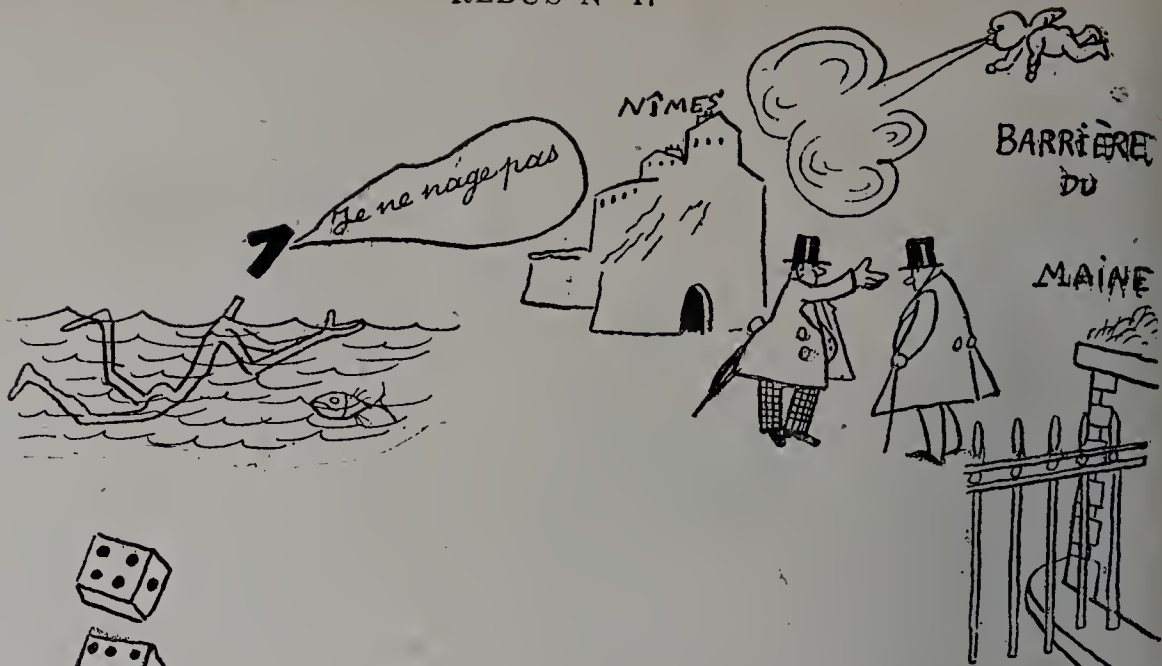 Je ne nage pas
NÎMES
BARRIÈRE
DU
MAINE